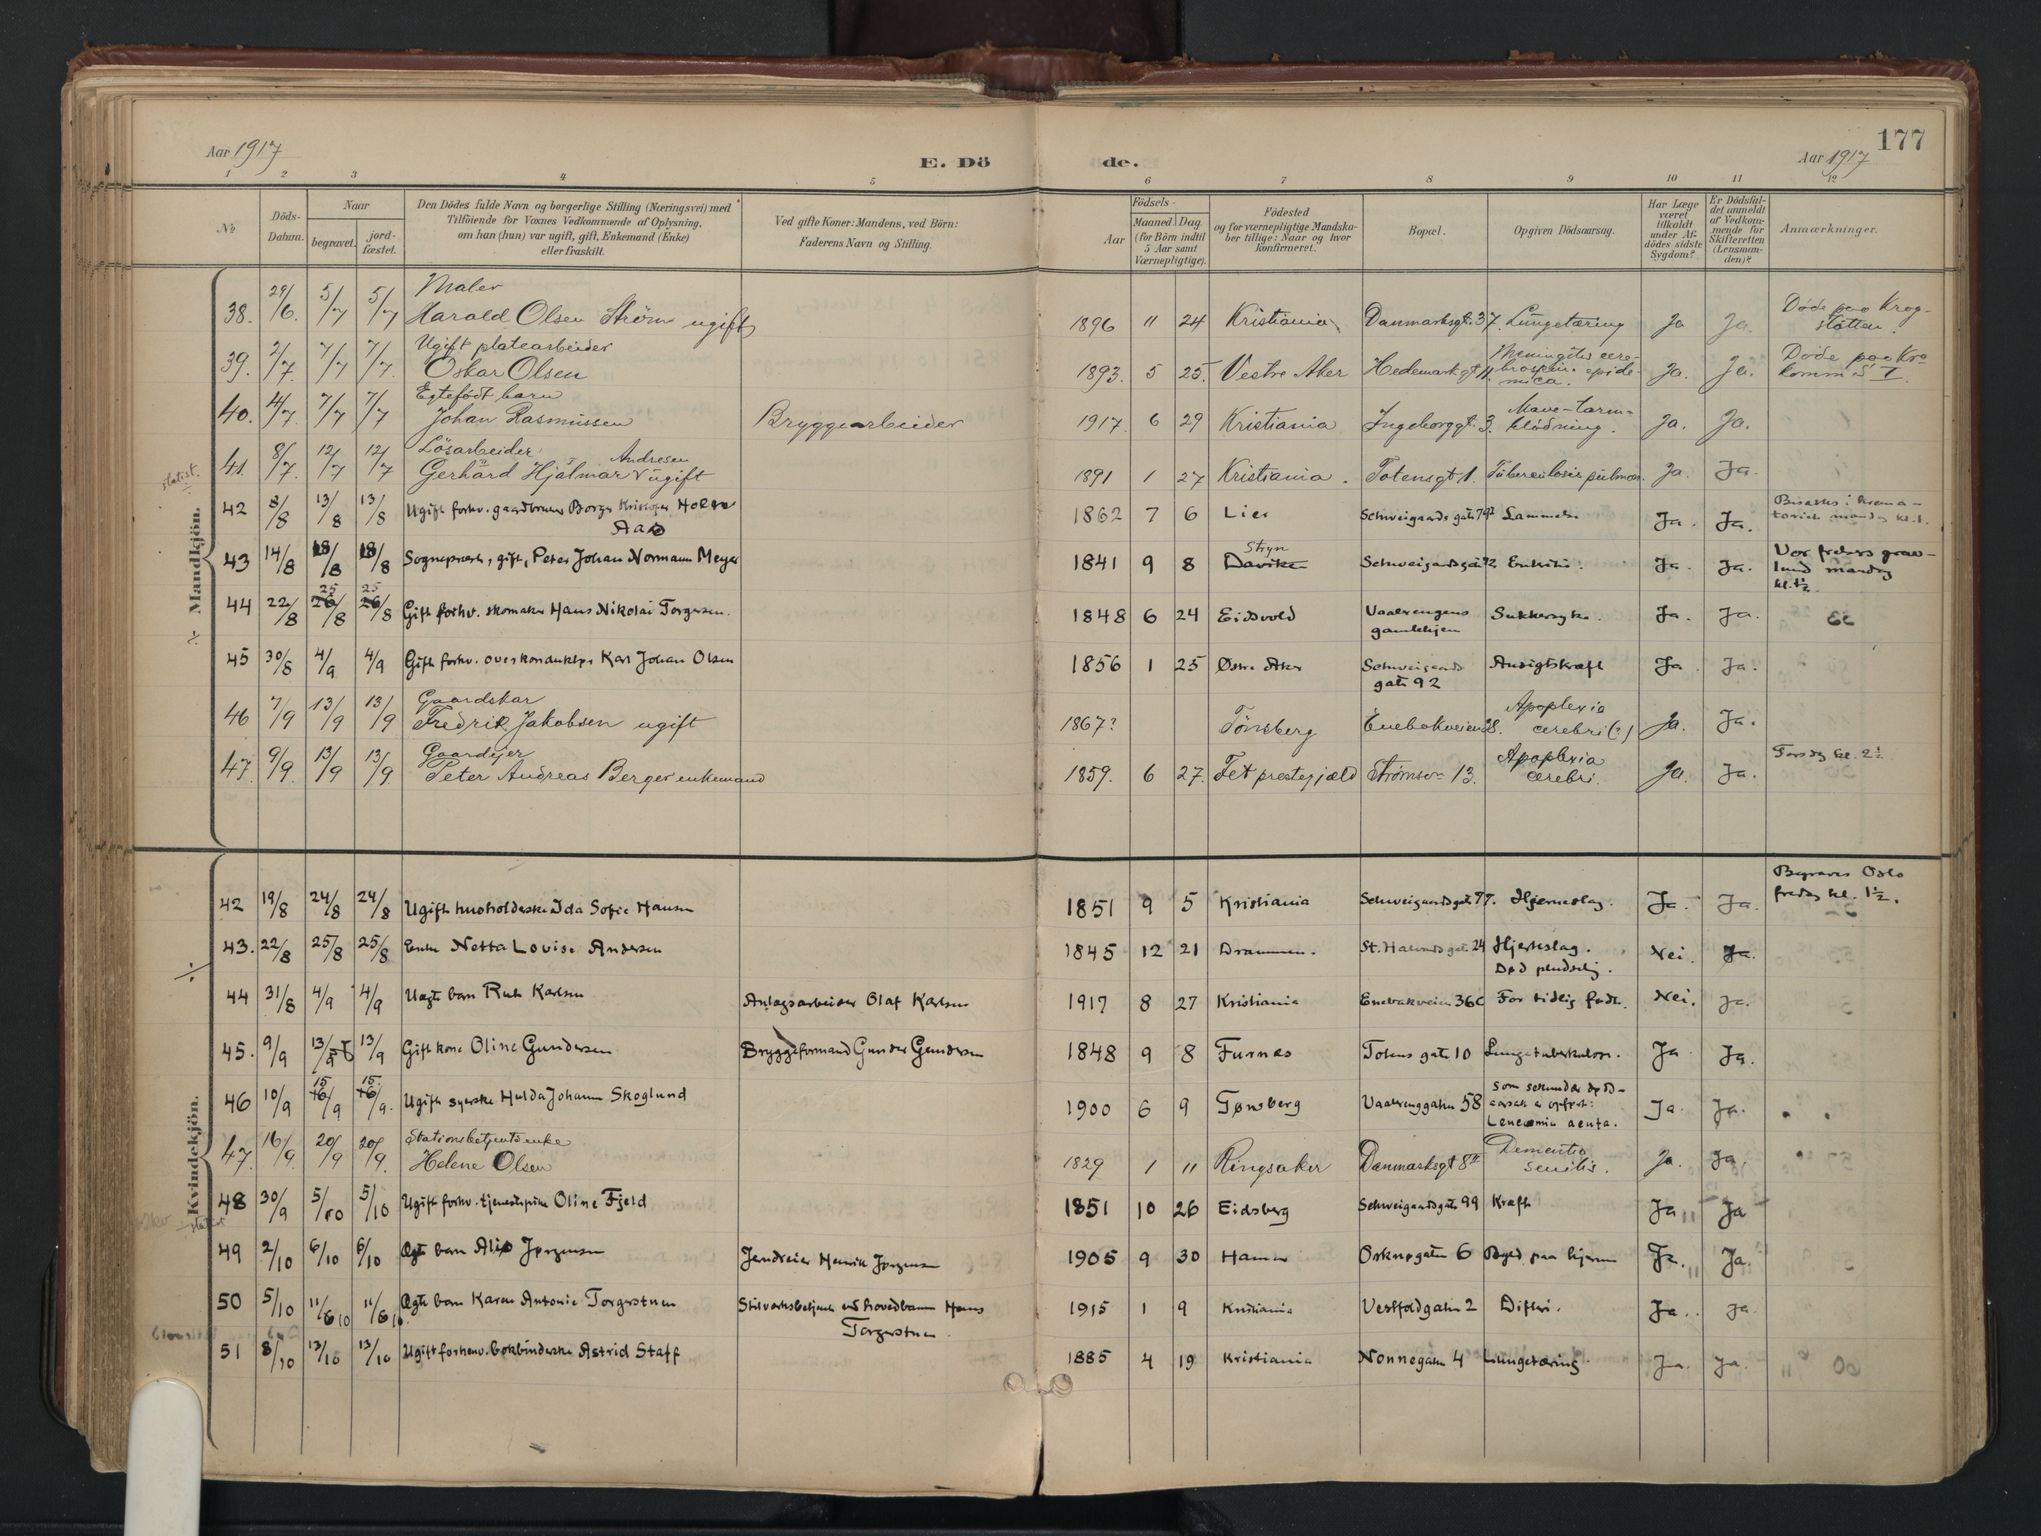 177
Aar 1917 E. Döde. Aar 1917
1 2 3 4 5 6 7 8 9 10 11 12
No Döds-Datum. Naar begravet. jord-fæstet. Den Dödes fulde Navn og borgerlige Stilling (Næringsvei) med Tilföiende for Voxnes Vedkommende af Oplysning, om han (hun) var ugift, gift, Enkemand (Enke) eller fraskilt. Ved gifte Koner: Mandens, ved Börn: Faderens Navn og Stilling. Födsels- Aar Maaned Dag (for Börn indtil 5 Aar samt Værnepligtige). Födested og for værnepligtige Mandskaber tillige: Naar og hvor konfirmeret. Bopæl. Opgiven Dödsaarsag. Har Læge været tilkaldt under Afdödes sidste Sygdom? Er Dödsfaldet anmeldt af Vedkommende for Skifteretten (Lensmanden)? Anmærkninger.
÷ Mandkjön.
38. 29/6. 5/7 5/7 Maler Harald Olsen Strøm ugift 1896 11 24 Kristiania Danmarksgt. 37. Lungetæring Ja Ja. Døde paa Krogstøtten.
39. 2/7. 7/7 7/7. Ugift platearbeider Oskar Olsen 1893. 5 25. Vestre Aker Hedemarkgt 11. Meningitis cerebrospin. epidemica. Ja. Ja. Døde paa Krokomm I.
40. 4/7. 7/7 7/7 Egtefødt barn Johan Rasmussen Bryggearbeider 1917. 6 29 Kristiania Ingeborggt. 3. Mave-tarm-blödning. Ja. Ja.
statist. ÷
41. 8/7. 12/7 12/7 Lösarbeider Gerhard Hjalmar Andresen ugift 1891 1 27 Kristiania. Totensgt 1. Tuberculosis pulmon. Ja. Ja.
42 8/8 13/8 13/8 Ugift forhv. gaardbruker Borge Kristofer Holm Aas 1862 7 6 Lier Schweigaards gate 79 Ja. Ja. mandag kl. 1.
43 14/8 18/8 18/8 Sogneprest, gift, Peter Johan Normann Meyer 1841 9 8 Stryn Daviken Schweigaardsgate 72 Ja. Ja. Vor frelsers gravlund mandag kl. 1½
44 22/8 25 26/8 25 26/8 Gift forhv. skomaker Hans Nikolai Torgersen. 1848 6 24 Eidsvold Vaalerengens gamlehjem Sukkersyke. Ja. Ja.
45 30/8 4/9 4/9 Gift forhv. overkonduktør Karl Johan Olsen 1856 1 25 Østre Aker Schweigaards gate 92 Ansigtskræft Ja Ja.
46 7/9 13/9 13/9 Gaardskar Fredrik Jakobsen ugift 1867? Tönsberg Enebakveien 28. Apoplexia cerebri (?) Ja. Ja.
47. 9/9. 13/9 13/9. Gaardejer Peter Andreas Berger enkemand 1859. 6 27. Fet prestegjæld Strømsv 13. Apoplexia cerebri. Ja. Ja. Torsdag kl. 2½
÷ Kvindekjön.
42 19/8 24/8 24/8 Ugift husholderske Ida Sofie Hansen 1851 9 5 Kristiania Schweigaardsgate 77. Hjerneslag. Ja. Ja. Begraves Oslo fredag kl. 1½.
43. 22/8 25/8 25/8 Enke Netta Lovise Andersen 1845 12 21 Drammen. St. Halvardsgate 24 Hjerteslag. Død pludselig. Nei. Ja.
44 31/8 4/9 4/9 Uegte barn Ruth Karlsen Anlægsarbeider Olaf Karlsen 1917 8 27 Kristiania Enebakveien 36c For tidlig født. Nei. Ja.
45. 9/9 13/9 13/9 Gift kone Oline Gundersen Bryggeformand Gunder Gundersen 1848 9 8 Furnes Totens gate 10 Lungetuberkulose. Ja Ja.
46 10/9 15 16/9 15 16/9. Ugift syerske Hulda Johanne Skoglund 1900 6 9 Tønsberg Vaalerenggaten 58 Som sekundær dødsaarsak er opført: Leucæmia acuta. Ja. Ja.
47. 16/9. 20/9 20/9. Stationsbetjentsenke Helene Olsen 1829 1 11 Ringsaker Danmarksgt 8 II Dementia senilis. Ja. Ja.
48 30/9 5/10 5/10 Ugift forhv. tjenestepike Oline Fjeld 1851 10 26 Eidsberg Schweigaardsgate 99 Kræft Ja Ja
÷ statist
49 2/10 6/10 6/10 Egte barn Alis Jørgensen Henrik Jørgensen 1905 9 30 Hamar 6 Byld paa hjernen Ja. Ja.
50 5/10 11/10 11/10. Egte barn Karen Antonie Torgerstuen ved hovedbanen Hans Torgerstuen. 1915 1 9 Kristiania Vestfoldgaten 2 Difteri. Ja. Ja
51 8/10 13/10 13/10 Ugift forhenv. bokbinderske Astrid Staff 1885 4 19 Kristiania Nonnegaten 4 Lungetæring. Ja. Ja.